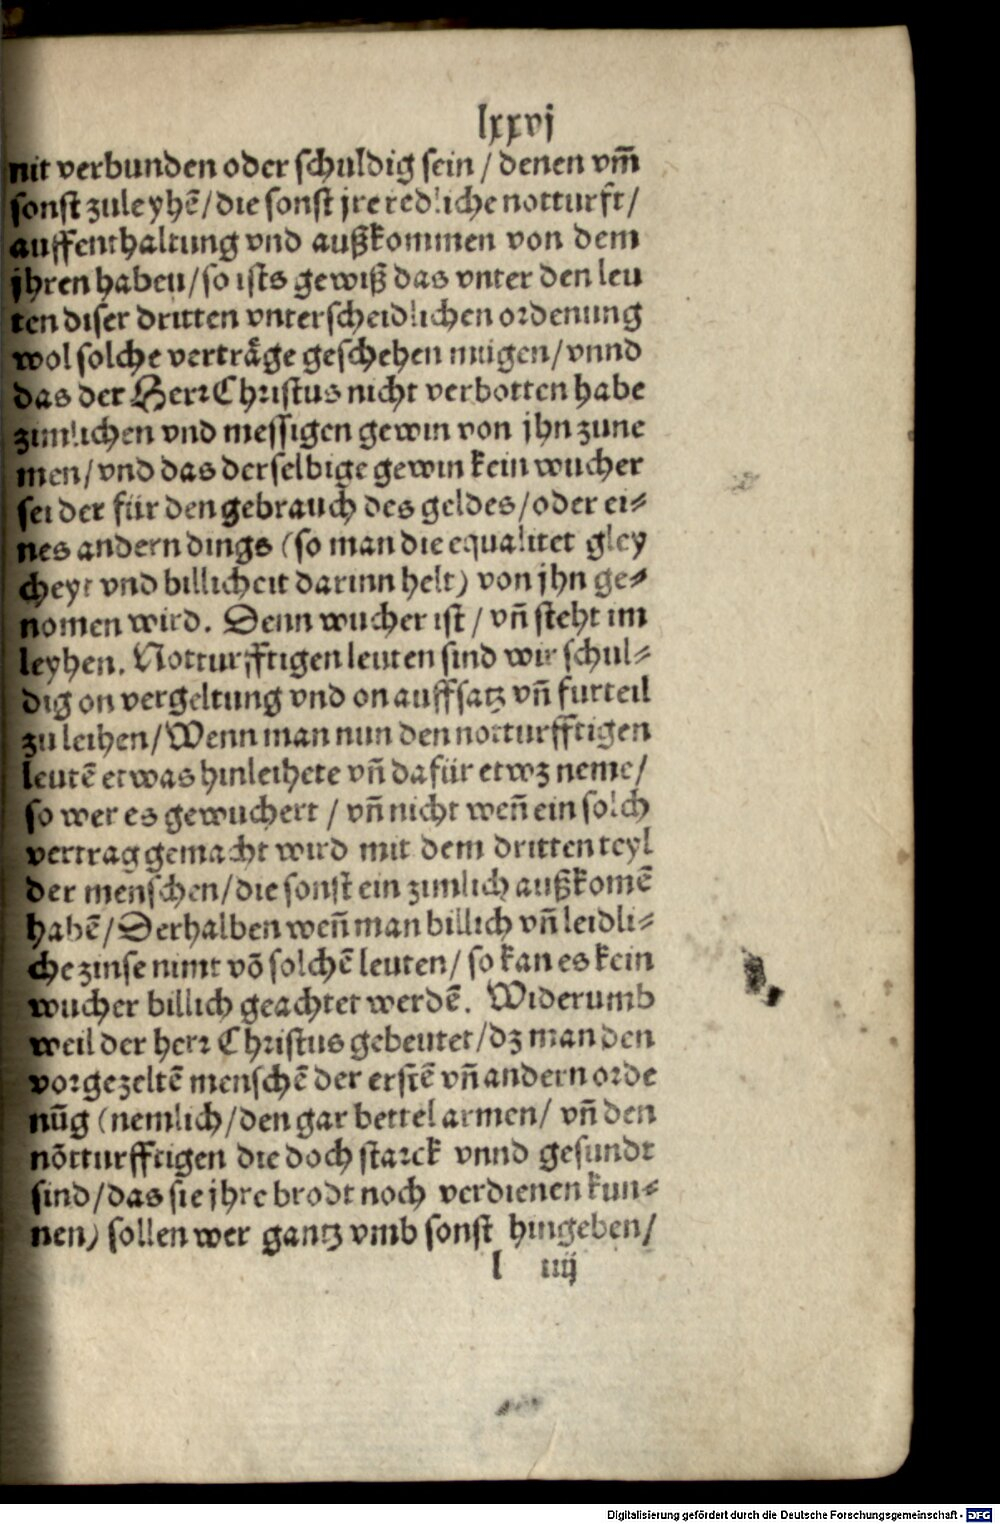 lxxvj
nit verbunden oder schuldig sein / denen vm̃
sonst zuleyhẽ / die sonst jre redliche notturft /
auffenthaltung vnd außkommen von dem
jhren haben / so ists gewiß das vnter den leu
ten diser dritten vnterscheidlichen ordenung
wol solche verträge geschehen mügen / vnnd
das der Herr Christus nicht verbotten habe
zimlichen vnd messigen gewin von jhn zune
men / vnd das derselbige gewin kein wucher
sei der für den gebrauch des geldes / oder ei⸗
nes andern dings (so man die equalitet gley
cheyt vnd billicheit darinn helt) von jhn ge⸗
nomen wird. Denn wucher ist / vñ steht im
leyhen. Notturfftigen leuten sind wir schul⸗
dig on vergeltung vnd on auffsatz vñ furteil
zu leihen / Wenn man nun den notturfftigen
leutẽ etwas hinleihete vñ dafür etwz neme /
so wer es gewuchert / vñ nicht weñ ein solch
vertrag gemacht wird mit dem dritten teyl
der menschen / die sonst ein zimlich außkomẽ
habẽ / Derhalben weñ man billich vñ leidli⸗
che zinse nimt võ solchẽ leuten / so kan es kein
wucher billich geachtet werdẽ. Widerumb
weil der herr Christus gebeutet / dz man den
vorgezeltẽ menschẽ der erstẽ vñ andern orde
nũg (nemlich / den gar bettel armen / vñ den
nõtturfftigen die doch starck vnnd gesundt
sind / das sie jhre brodt noch verdienen kun⸗
nen) sollen wer gantz vmb sonst hingeben /
l iiij
Digitalisierung gefördert durch die Deutsche Forschungsgemeinschaft - DFG